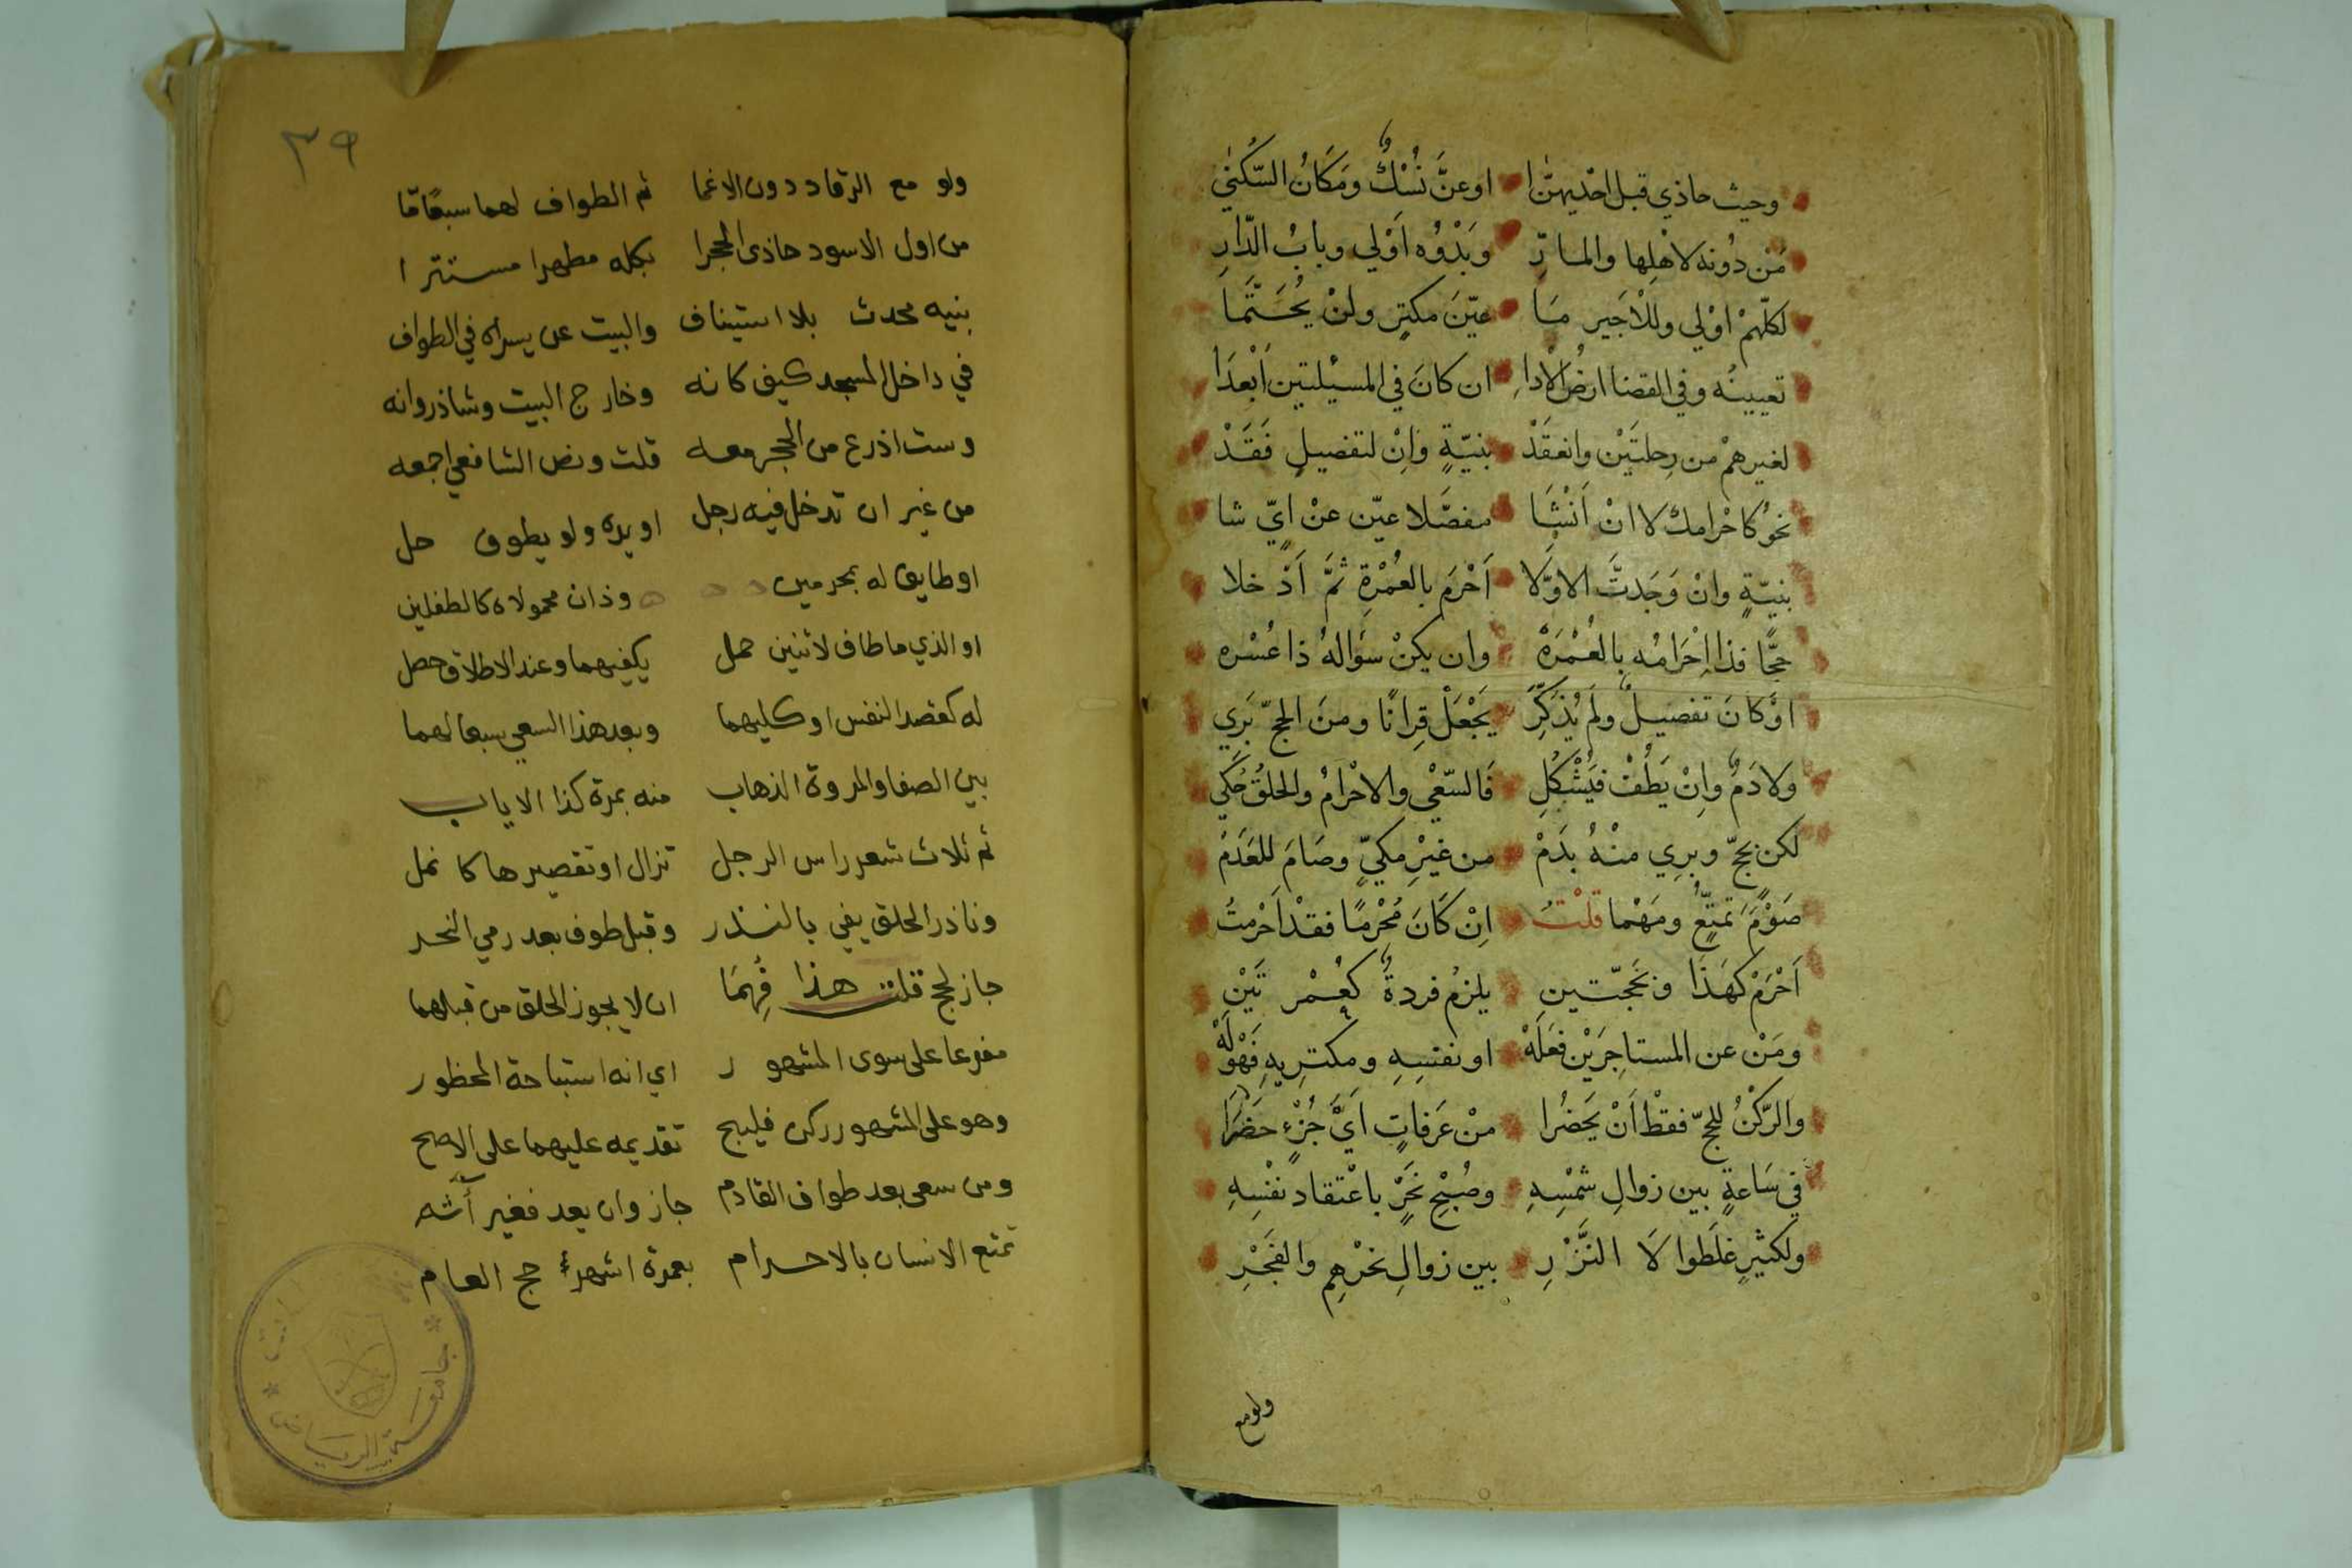 وحيث حاذي قبل احديهنّ ا اوعنَّ نُسْكٌ ومَكَانُ السّكنٰي
مَنْ دُونه لاهْلِها والمارِّ وَبَدْوُه اَوْلي وبابُ الدّارِ
لكلّهمْ اوْلي وللْاجَير مَا عيّنَ مكتٍر ولنْ يُحَتَّمَا
تعيينُه وفي القضا ارضُ الْادا ان كانَ في المسيْلتين اَبْعدَا
لغيرهمْ من رِحلتَيْن وانعقَدْ بنيّةٍ وَانْ لتفضيلٍ فَقَدْ
نحوُ كاحْرامك لا انْ اَنْشَا مفصَّلا عيّن عنْ ايٍّ شا
بنيّةٍ وانْ وَجَدتَّ الاوّلَا اَحْرَم بالعُمْرةِ ثمَّ اَدْخلا
حجًّا فذا اِحْرَامُه بِالعُمْرَهْ وان يكنْ سؤالهُ ذا عُسْره
اوْ كانَ تفصيلٌ ولم يُذَكَّرِ يَجْعَلْ قِرانًا ومنَ الحجّ بَرِي
ولا دَمٌ وانْ يَطُفْ فيُشْكُلِ فَالسّعْي والاحْرَامُ والحلقُ حُكي
لكن بحجّ وبرِي منْهُ بدَمْ من غيْرِ مكيٍّ وصَامَ للعَدَمْ
صَوْمَ تمتّعٍ ومَهْما قلْتُ اِنْ كَانَ مُحْرمًا فقدْ اَحْرمتُ
اَحْرَمْ كهَذَا وبحَجّتينِ يلزمُ فردةٌ كعُمْرتَيْنِ
ومَنْ عن المستاجِرَيْن فعَلَهْ او نفسِهِ ومكتِريهِ فَهْوَ لَهْ
والرّكْنُ للحجّ فقطْ اَنْ يَحَضُرا منْ عَرفاتٍ ايَّ جُزْءٍ حَضَرَا
في سَاعةٍ بين زوالِ شمْسِهِ وصُبْحِ نَحْرٍ باعْتقاد نفْسِهِ
ولكثيرٍ غلَطوا لَا النَّزْرِ بين زوالِ نحْرهِم والفَجْرِ
ولو مع
٣٩
ولو مع الرقاد دون الاغما ثم الطواف لهما سبعًا تمّا
من اول الاسود حاذى الحجرا بكله مطهرا مستترا
بنيه محدث بلا استيناف والبيت عن يسراه في الطواف
في داخل المسجد كيف كانه وخارج البيت وشاذروانه
وست اذرع من الحجر معه قلت ونص الشافعي اجمعه
من غير ان تدخل فيه رجل او يده ولو يطوف حل
او طايف له بمحرمين وذان محمولاه كالطفلين
او الذي ما طاف لاثنين حمل يكفيهما وعند الاطلاق حصل
له كقصد النفس او كليهما وبعد هذا السعي سبعا لهما
بين الصفا والمروة الذهاب منه بمرة كذا الاياب
ثم ثلاث شعر راس الرجل تزال او تقصيرها كانمل
وناذر الحلق يفي بالنذر وقبل طوف بعد رمي النحر
جاز لحج قلت هذا فُهِمَا ان لا يجوز الحلق من قبلهما
مفرعا على سوى المشهور اي انه استباحة المحظور
وهو على المشهور ركن فليبح تقديمه عليهما على الاصح
ومن سعى بعد طواف القادم جاز وان يعد فغير آثم
تمتع الانسان بالاحرام بعمرة اشهر حج العام
جامعة الرياض